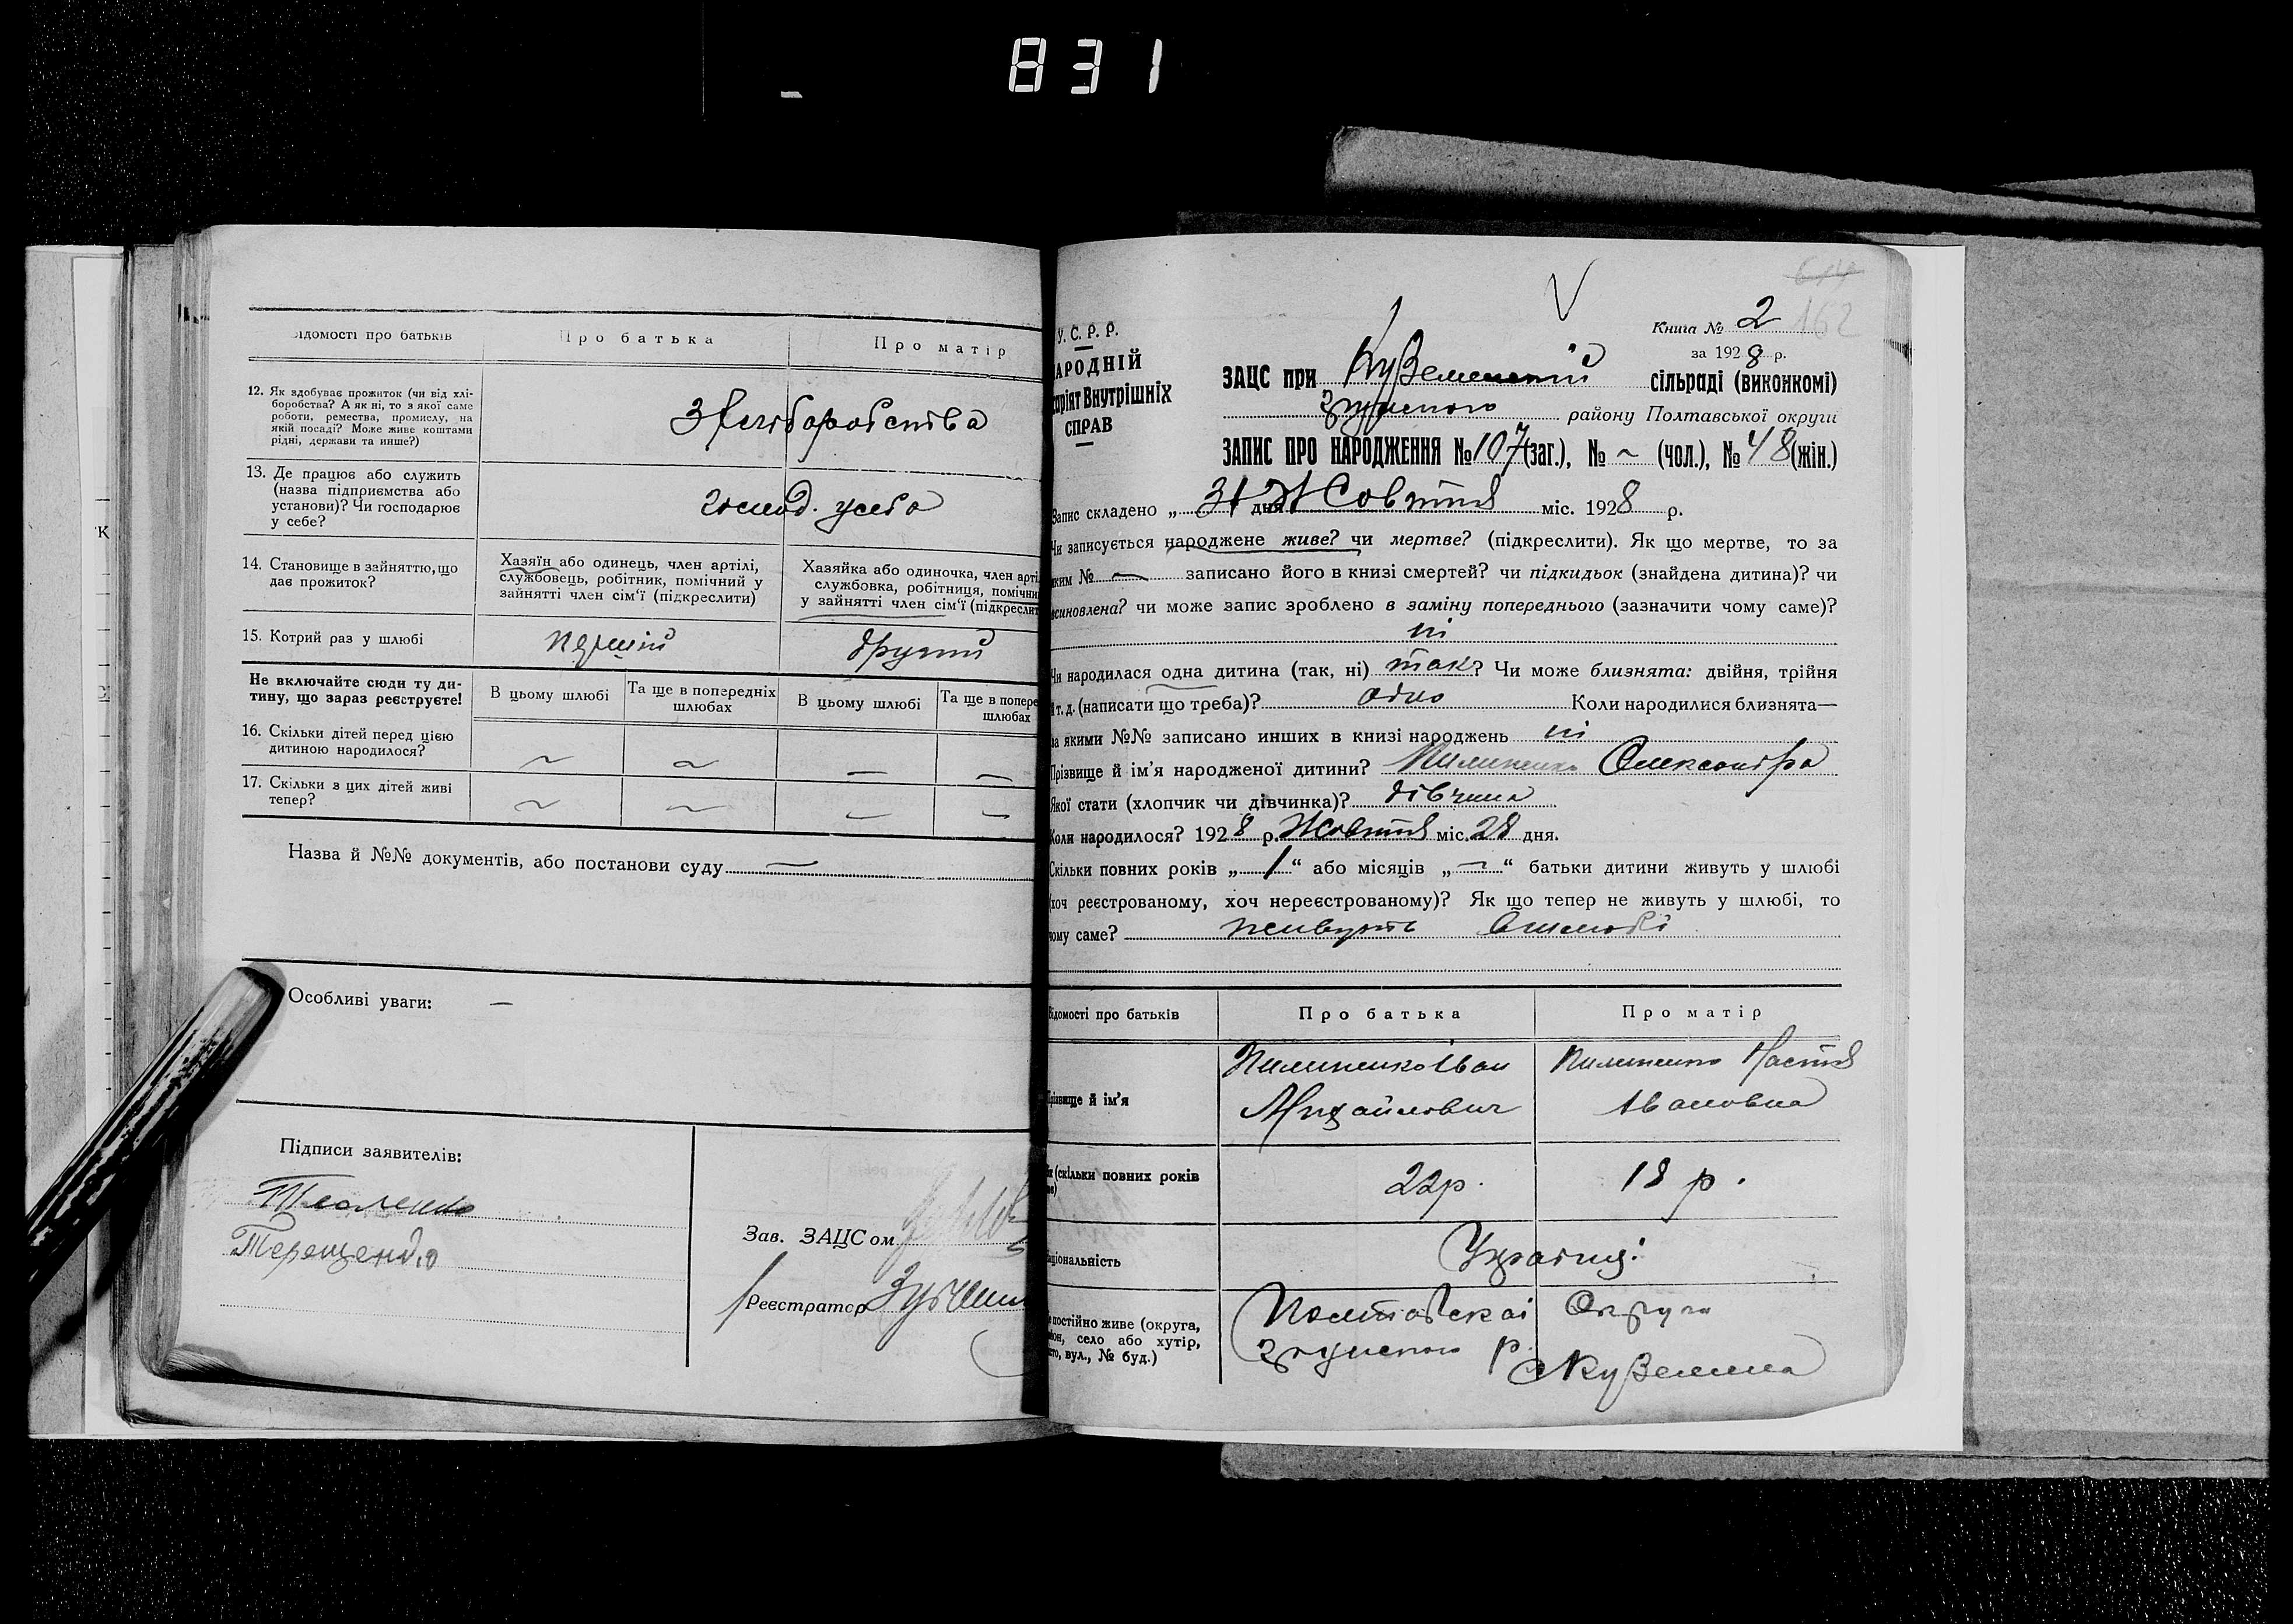 831
Відомості про батьків
Про батька
Про матір
12. Як здобуває прожиток (чи від хлі-
боробства? А як ні, то з якої саме
роботи, ремества, промислу, на
якій посаді? Може живе коштами
рідні, держави та инше?)
З хліборобства
13. Де працює або служить
(назва підприємства або
установи)? Чи господарює
у себе?
господ. у себе
14. Становище в зайняттю, що
дає прожиток?
Хазяїн або одинець, член артілі,
службовець, робітник, помічний у
зайнятті член сім'ї (підкреслити)
Хазяйка або одиночка, член арті
службовка, робітниця, помічни
у зайнятті член сім'ї (підкреслит
15. Котрий раз у шлюбі
перший
другий
Не включайте сюди ту ди-
тину, що зараз реєструєте!
В цьому шлюбі
Та ще в попередніх
шлюбах
В цьому шлюбі
Та ще в попере
шлюбах
16. Скільки дітей перед цією
дитиною народилося?
~ ~ — —
17. Скільки з цих дітей живі
тепер?
~ ~ — —
Назва й №№ документів, або постанови суду —
Особливі уваги: —
Підписи заявителів:
Терещенко
Зав. ЗАЦСом
Реєстратор
У.С.Р.Р.
АРОДНІЙ
аріят Внутрішніх
СПРАВ
Книга № 2
162
за 1928 р.
ЗАЦС при Куземенській сільраді (виконкомі)
району Полтавської округи
ЗАПИС ПРО НАРОДЖЕННЯ № 107 (заг.), № ~ (чол.), № 48 (жін.)
Запис складено „ 31 дня Жовтня міс. 1928 р.
Чи записується народжене живе? чи мертве? (підкреслити). Як що мертве, то за
яким № — записано його в книзі смертей? чи підкидьок (знайдена дитина)? чи
всиновлена? чи може запис зроблено в заміну попереднього (зазначити чому саме)?
ні
Чи народилася одна дитина (так, ні) так? Чи може близнята: двійня, трійня
і т. д. (написати що треба)? одно Коли народилися близнята—
за якими №№ записано инших в книзі народжень ні
Прізвище й ім'я народженої дитини? Пилипенко Олександра
Якої стати (хлопчик чи дівчинка)? дівчина
Коли народилося? 1928 р. Жовтня міс. 28 дня.
Скільки повних років „ 1 “ або місяців „ — “ батьки дитини живуть у шлюбі
(хоч реєстрованому, хоч нереєстрованому)? Як що тепер не живуть у шлюбі, то
чому саме? живуть вшлюбі
Відомості про батьків
Про батька
Про матір
Прізвище й ім'я
Пилипенко Іван
Михайлович
Пилипенко Настя
Івановна
(скільки повних років
22 р.
18 р.
Національність
Українці
постійно живе (округа,
район, село або хутір,
місто, вул., № буд.)
Полтавскоі Округи
р. с Куземина